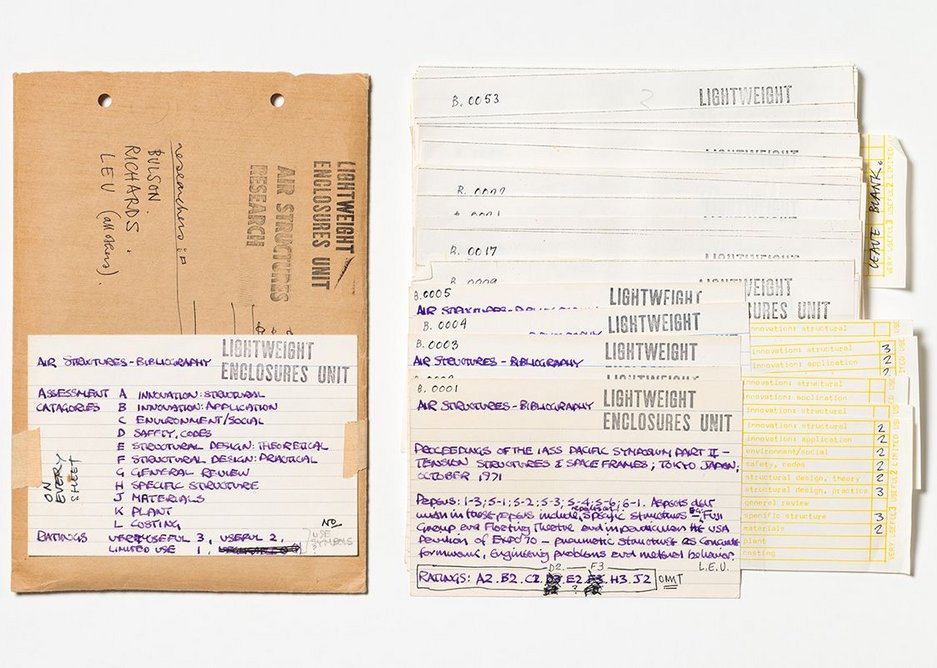 LIGHTWEIGHT
ENCLOSURES UNIT
AIR STRUCTURES
RESEARCH
researchers:
BULSON.
RICHARDS.
LEU (all others).
AIR STRUCTURES - BIBLIOGRAPHY
LIGHTWEIGHT
ENCLOSURES UNIT
ASSESSMENT A INNOVATION: STRUCTURAL
CATAGORIES B INNOVATION: APPLICATION
C ENVIRONMENT/SOCIAL
D SAFTY, CODES
E STRUCTURAL DESIGN: THEORETICAL
F STRUCTURAL DESIGN: PRACTICAL
G GENERAL REVIEW
H SPECIFIC STRUCTURE
J MATERIALS
K PLANT
L COSTING
RATINGS VERY USEFUL 3, USEFUL 2,
LIMITED USE 1,
NO
USE
SYMBOLS
ON
EVERY
SHEET
B.0053
LIGHTWEIGHT
B.0017
LEAVE BLANK.
B.0005
LIGHTWEIGHT
AIR STRUCTURES - BIBLIOGRAPHY
B.0004
LIGHTWEIGHT
B.0003
LIGHTWEIGHT
AIR STRUCTURES - BIBLIOGRAPHY
B.0001
LIGHTWEIGHT
ENCLOSURES UNIT
AIR STRUCTURES - BIBLIOGRAPHY
PROCEEDINGS OF THE IASS PACIFIC SYMPOSIUM PART II -
TENSION STRUCTURES & SPACE FRAMES; TOKYO JAPAN;
OCTOBER 1971
Papers: 1-3; 5-1; 5-2; 5-3; 5-4; 5-6; 6-1. Aspects dealt
with in these papers include, Specific structures - Fuji
Group and Floating Theatre and in particular the USA
Pavilion of EXPO '70 - pneumatic structures as concrete
formwork, Engineering problems and material behavior.
L.E.U.
D2. F3
RATINGS: A2. B2. C2. E2. H3. J2
OMIT
innovation: structural
innovation: structural
innovation: application
3
2
innovation: structural
innovation: application
innovation: structural
innovation: application
environment/social
safety, codes
structural design, theory
structural design, practice
general review
specific structure
materials
plant
costing
2
2
2
2
2
3
3
2
VERY USEFUL3 USEFUL2 LIMITED